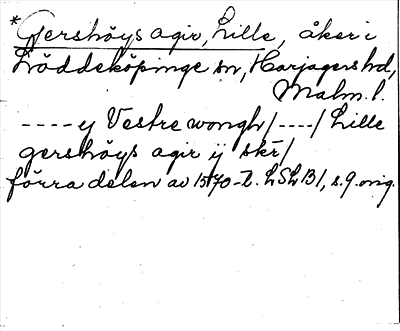 *Gershöys agir, Lille, åker i
Löddeköpinge sn, Harjagers hd,
Malm. l.
---- y Vestre wongh /----/ Lille
gershöys agir ij skr /
förra delen av 1570-t. LSLB1, s. 9. orig.